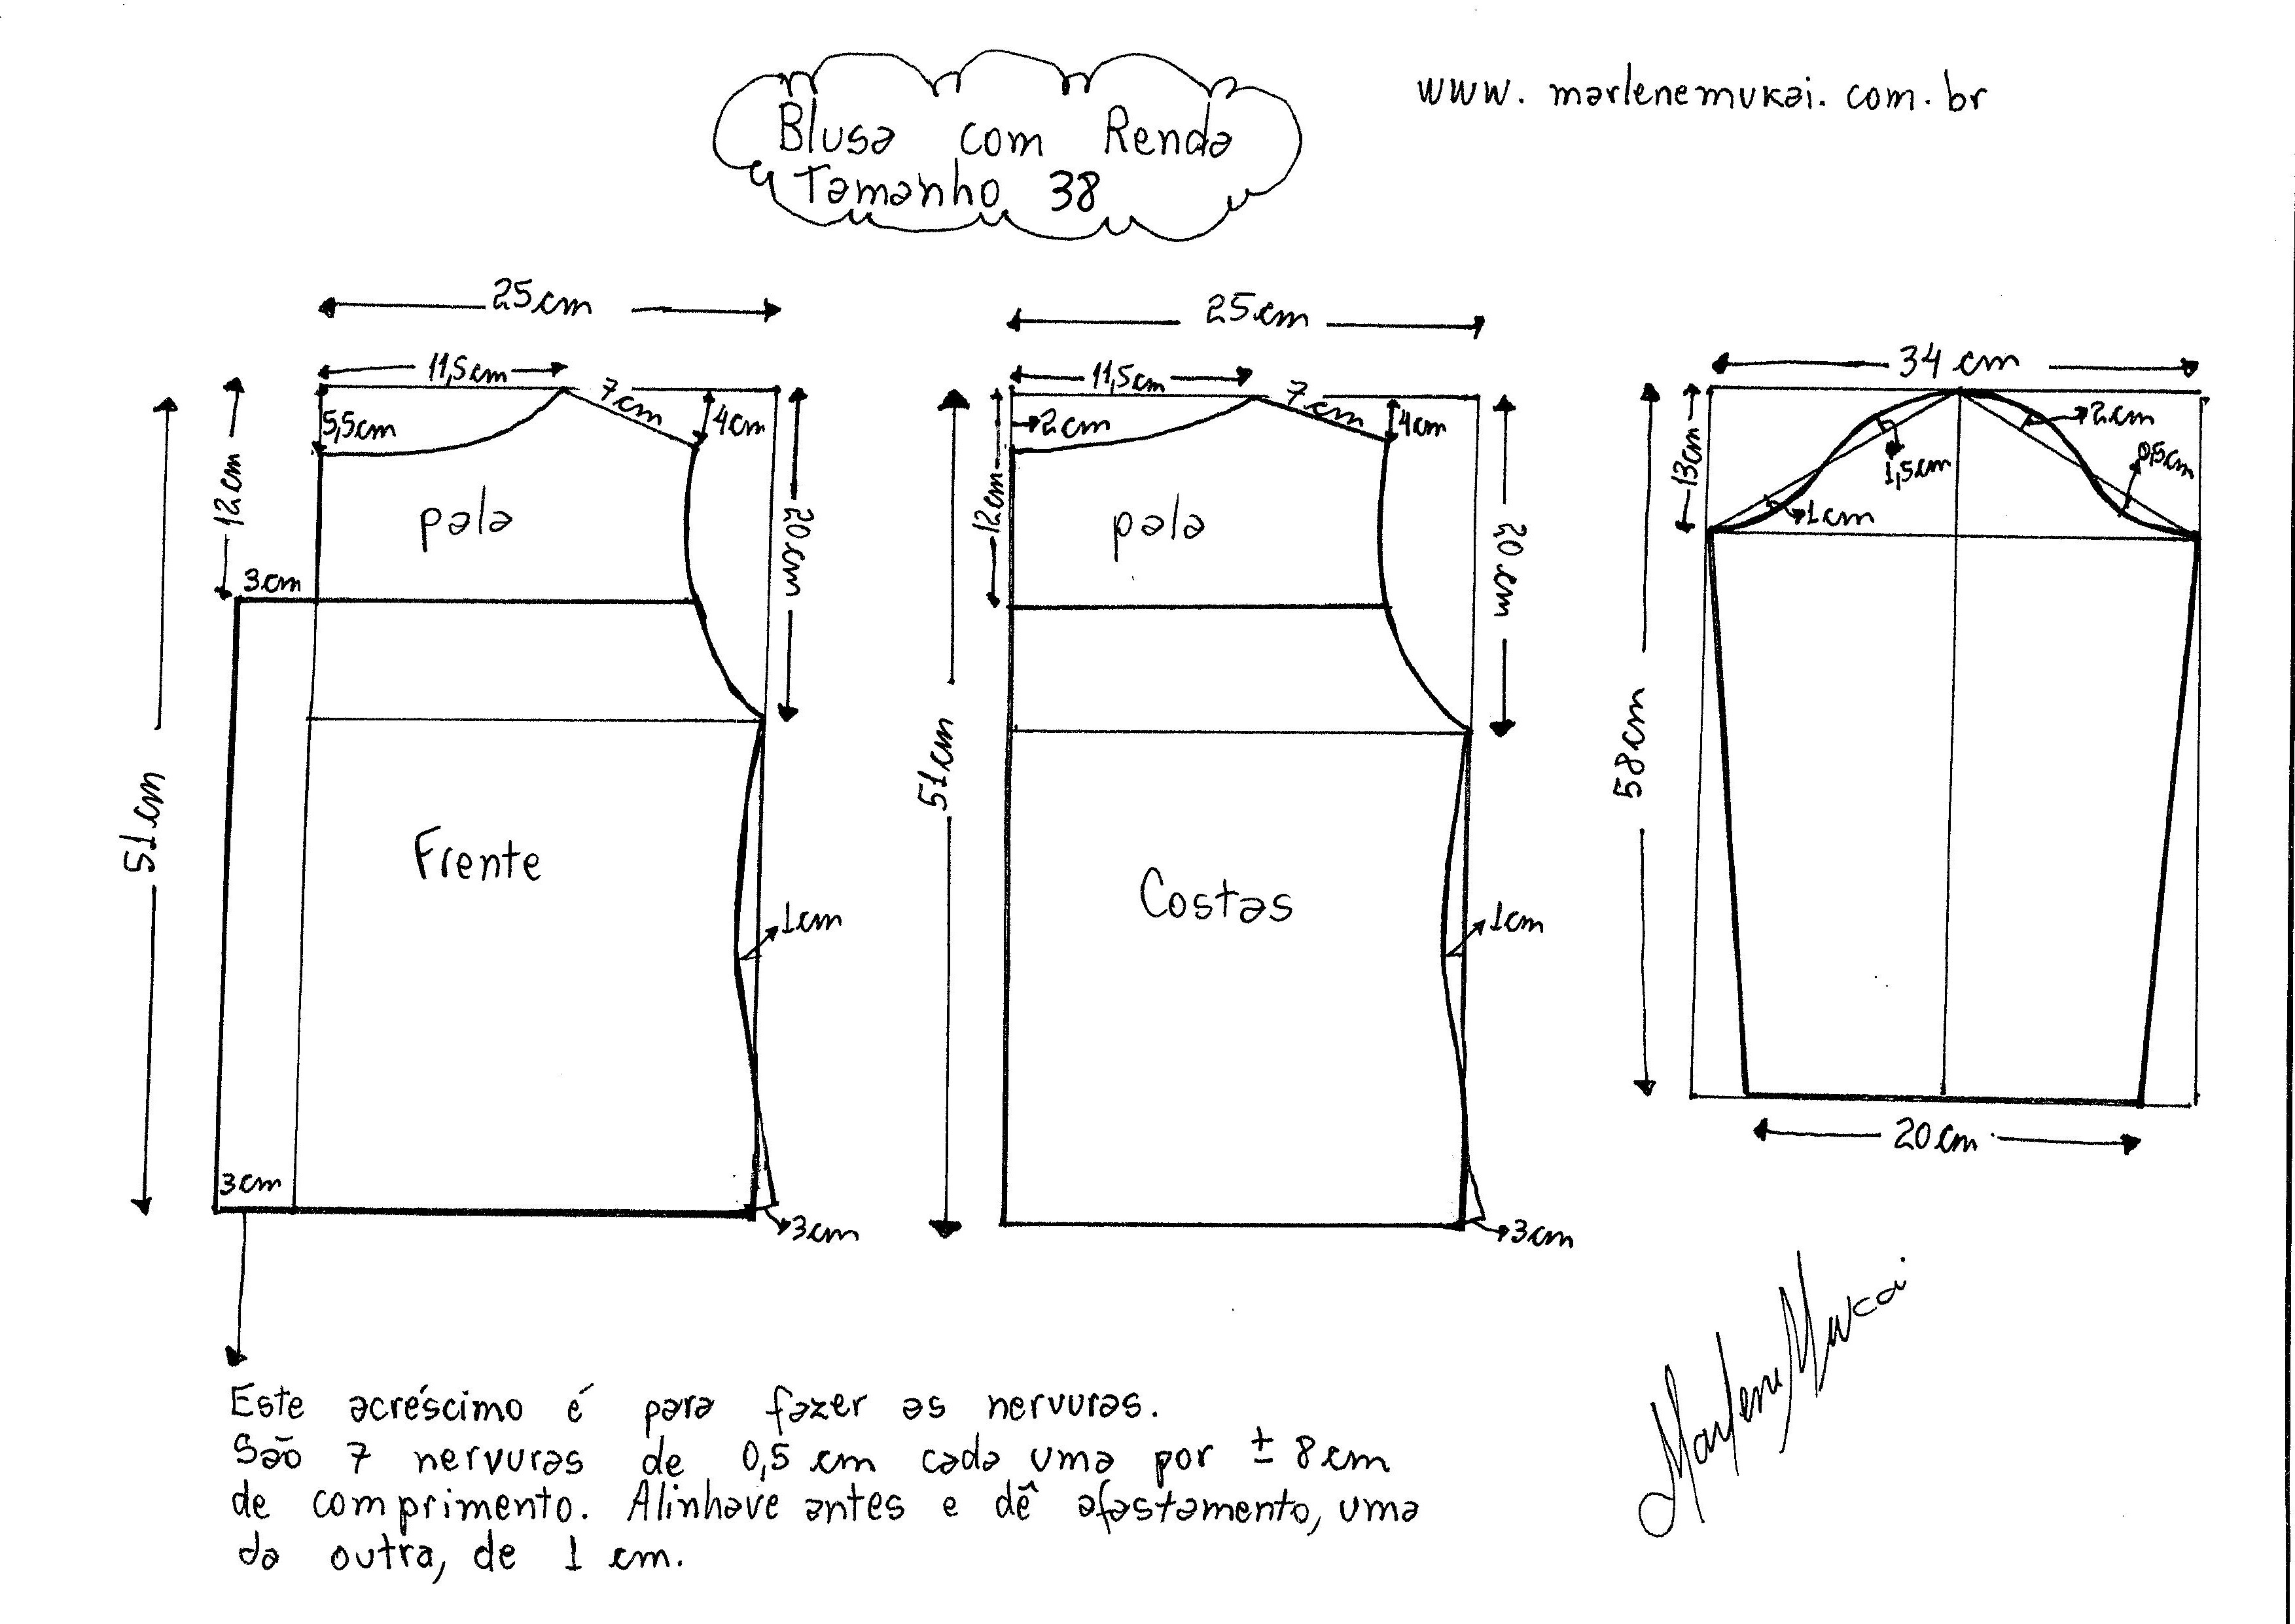 Blusa com Renda
Tamanho 38
www.marlenemukai.com.br
25cm
11,5cm
7cm
5,5cm
4cm
12cm
20cm
pala
3cm
51cm
Frente
1cm
3cm
3cm
25cm
11,5cm
7cm
2cm
4cm
12cm
20cm
pala
51cm
Costas
1cm
3cm
34cm
13cm
2cm
1,5cm
0,5cm
1cm
58cm
20cm
Este acréscimo é para fazer as nervuras.
São 7 nervuras de 0,5 cm cada uma por ± 8cm
de comprimento. Alinhave antes e dê afastamento, uma
da outra, de 1 cm.
Marlene Mukai